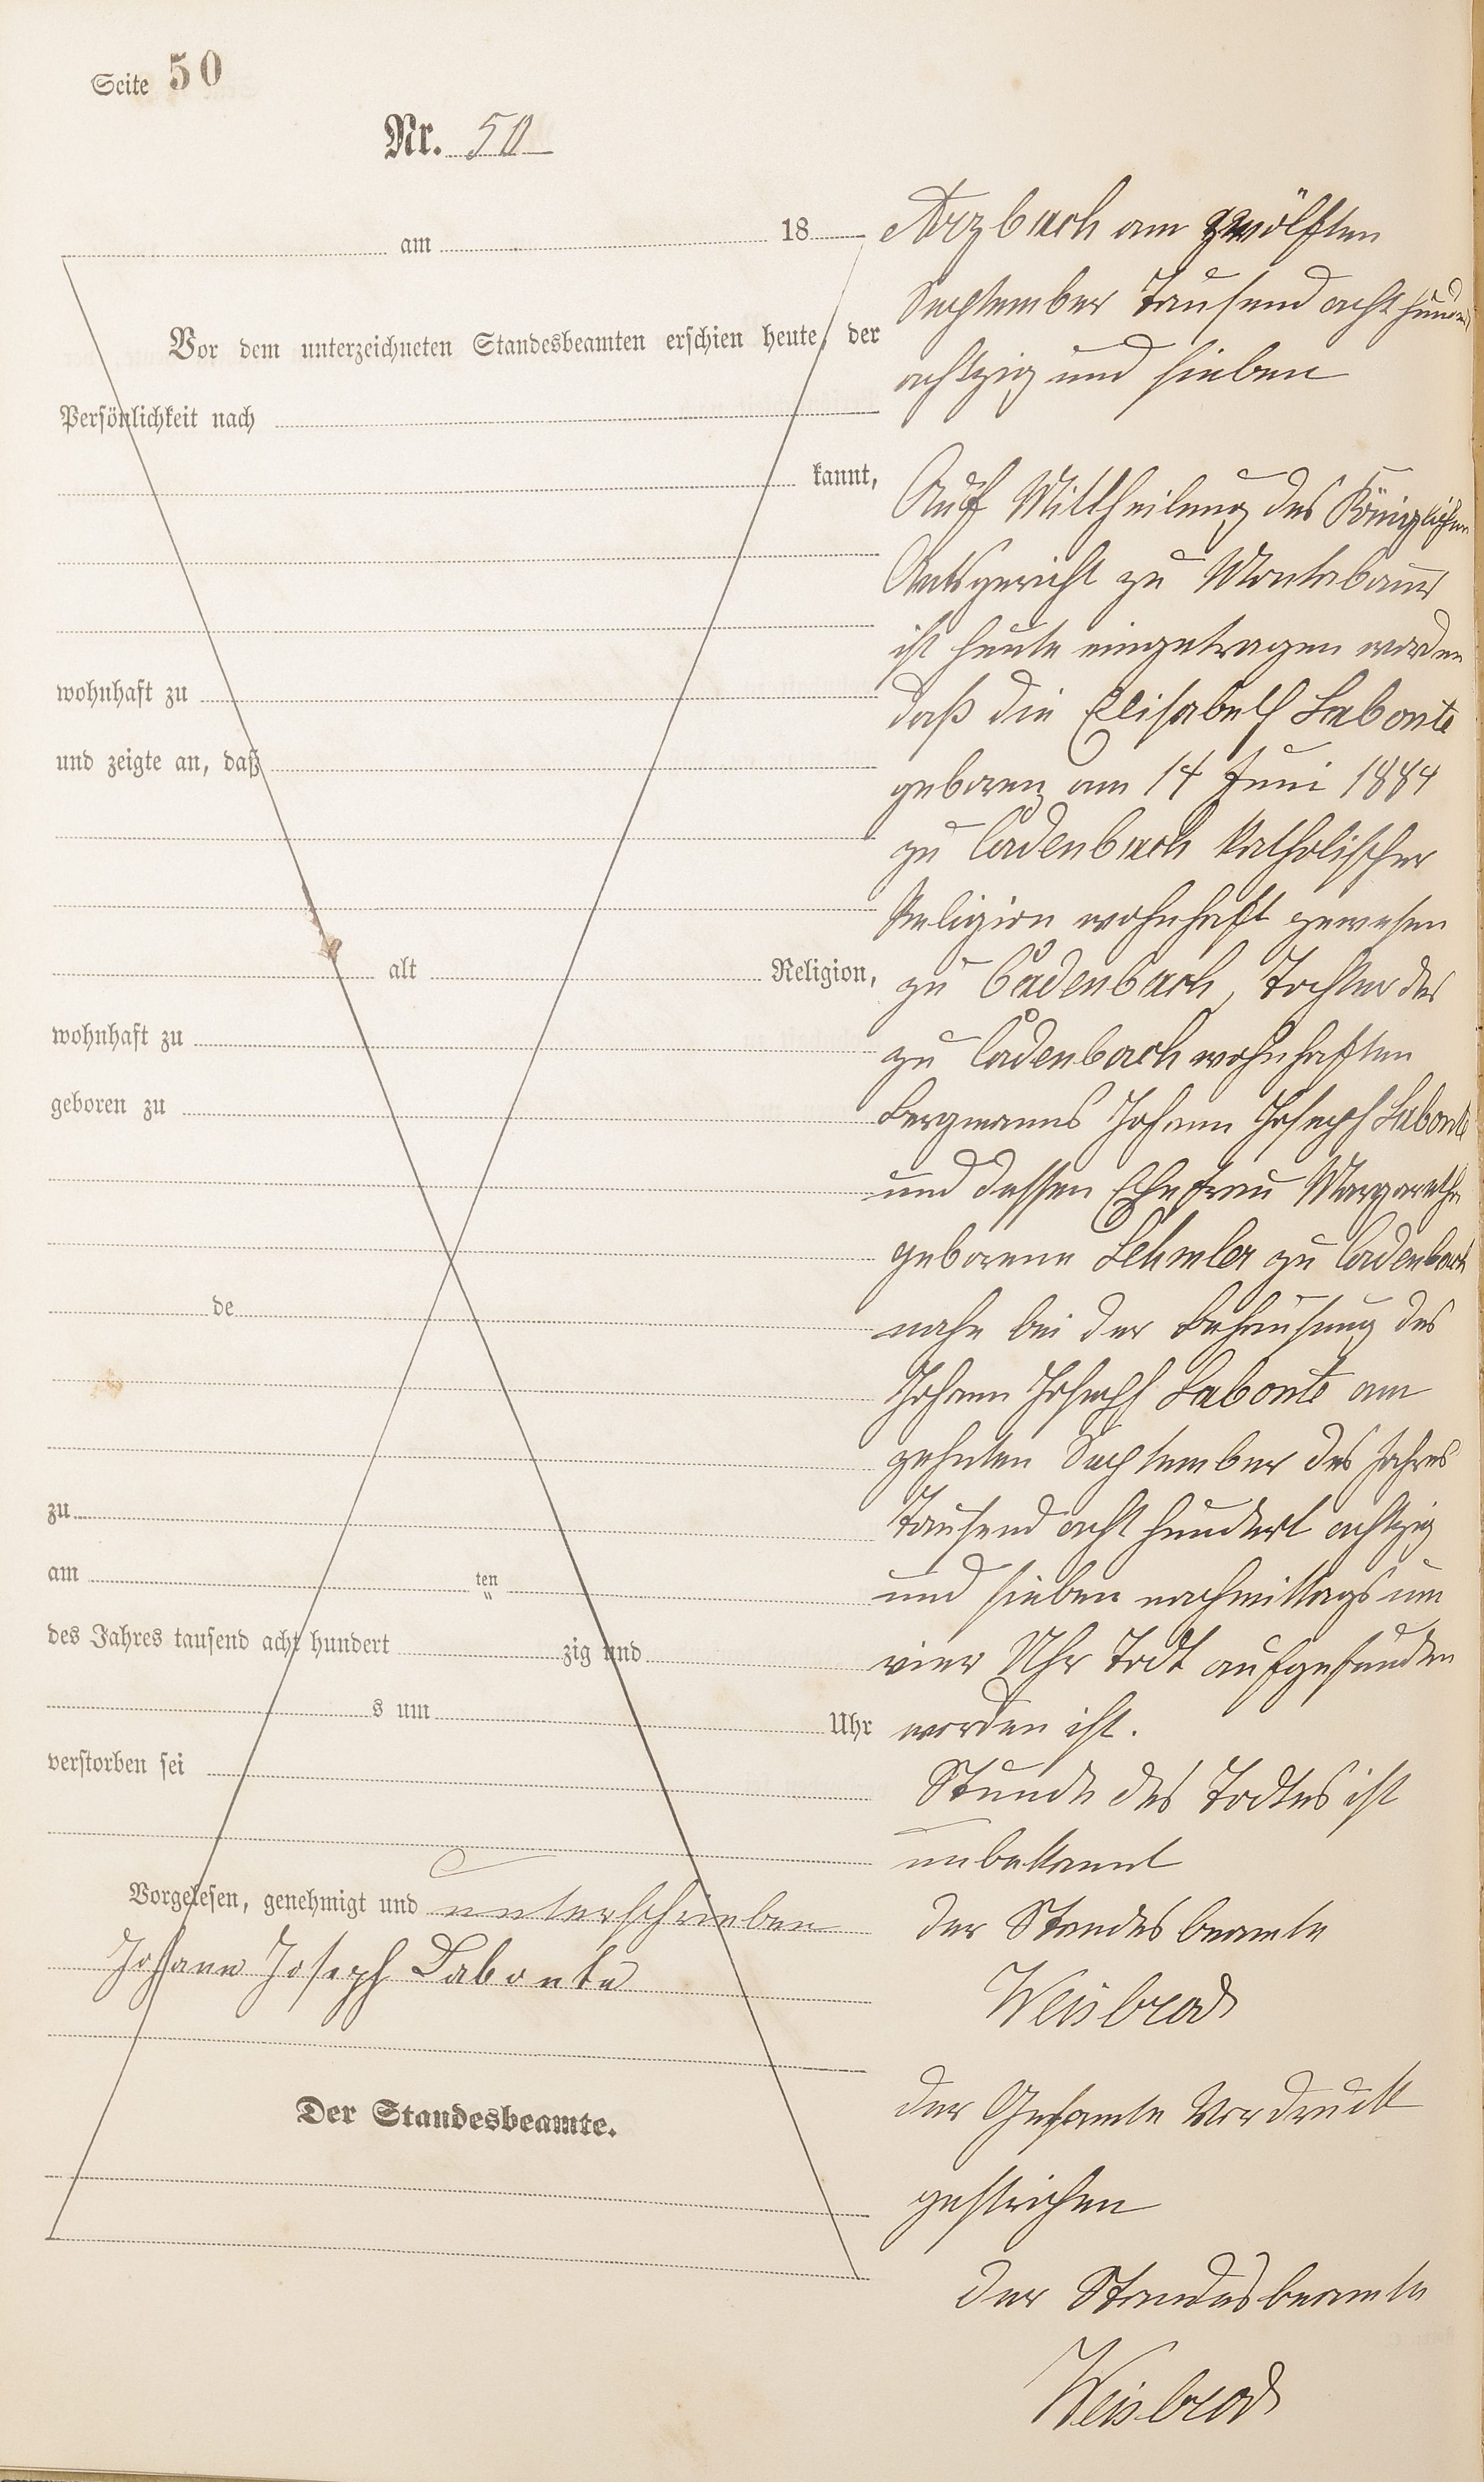 Seite 50
Nr. 50
am 18
Vor dem unterzeichneten Standesbeamten erschien heute, der
Persönlichkeit nach
kannt,
wohnhaft zu
und zeigte an, daß
alt Religion,
wohnhaft zu
geboren zu
de
zu
am ten
des Jahres tausend acht hundert zig und
s um Uhr
verstorben sei
Vorgelesen, genehmigt und unterschrieben
Johann Joseph Labonte
Der Standesbeamte.
Arzbach am zwölften
September Tausend acht hundert
achtzig und sieben
Auf Mittheilung des Königlichen
Amtsgericht zu Montabaur
ist heute eingetragen worden
daß die Elisabeth Labonte
geboren am 14 Juni 1884
zu Cadenbach katholischer
Religion wohnhaft gewesen
zu Cadenbach, Tochter des
zu Cadenbach wohnhaften
Bergmanns Johann Joseph Labonte
und dessen Ehefrau Margarethe
geborene Lehmler zu Cadenbach
nahe bei der Behausung des
Johann Joseph Labonte am
zehnten September des Jahres
Tausend acht hundert achtzig
und sieben nachmittags um
vier Uhr Todt aufgefunden
worden ist.
Stunde des Todtes ist
unbekannt
Der Standesbeamte
Weisbrod
Der Gesamte Vordruck
gestrichen
Der Standesbeamte
Weisbrod